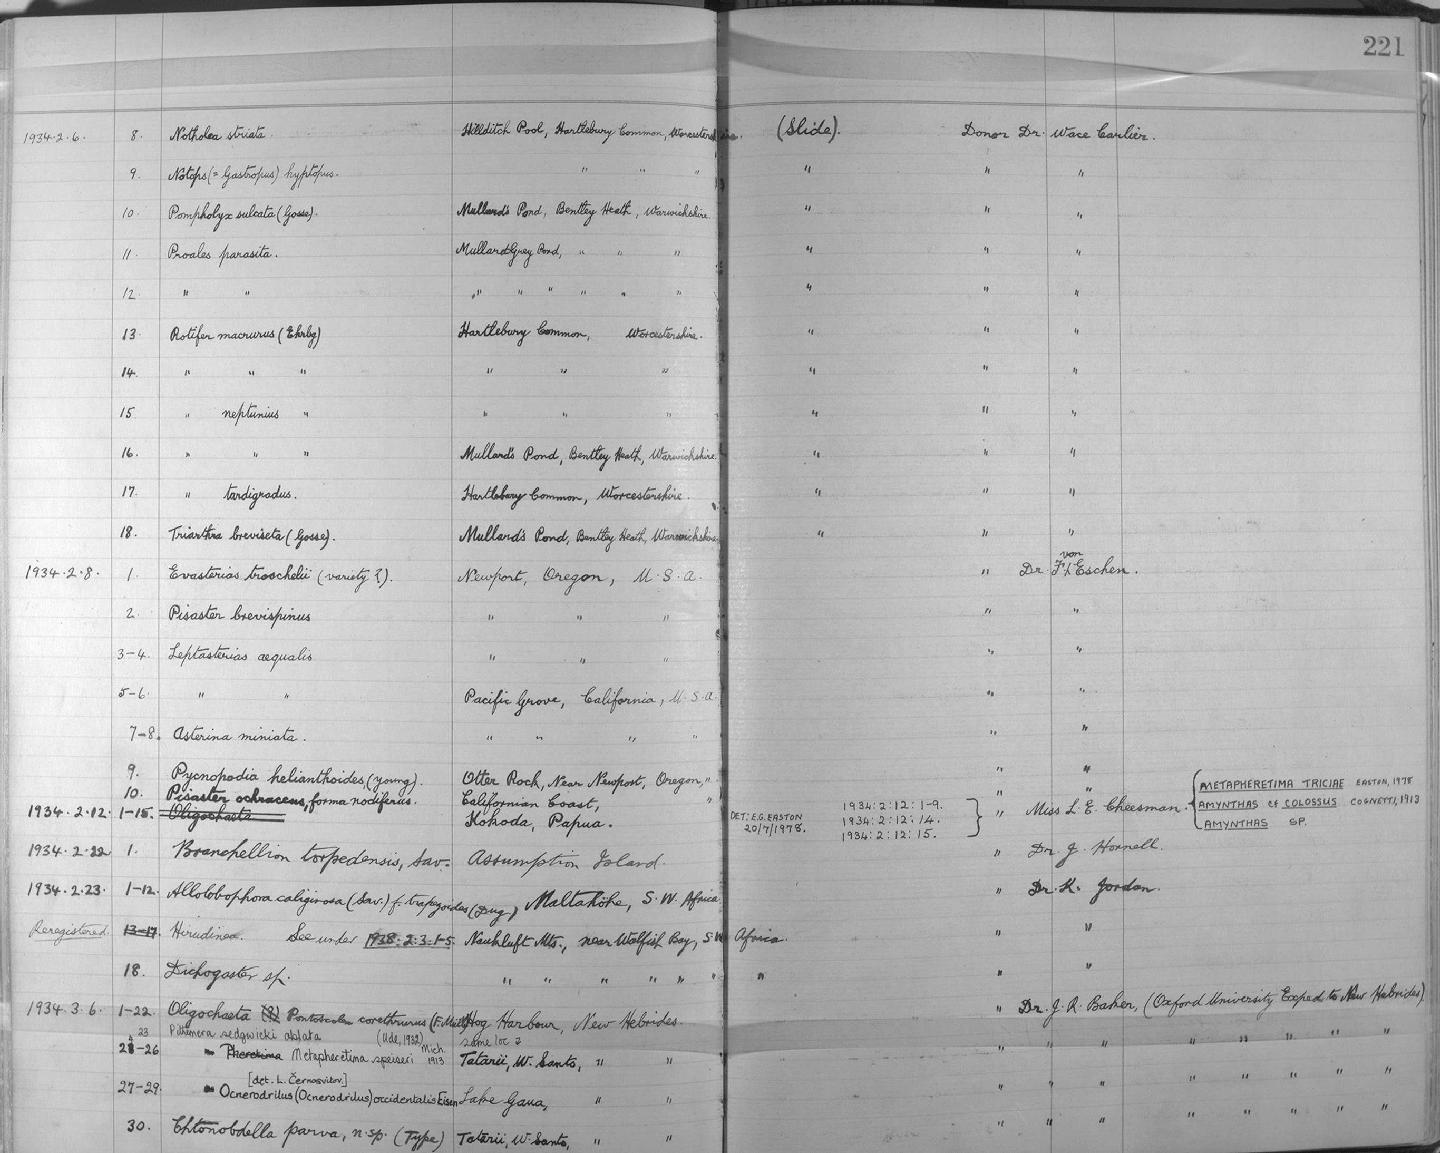 221
1934.2.6. 8. Notholca striata. Hillditch Pool, Hartlebury Common, Worcestershire. (Slide). Donor Dr. Wace Carlier.
9. Notops (= Gastropus) hyptopus. " " " " " "
10. Pompholyx sulcata (Gosse). Mullard's Pond, Bentley Heath, Warwickshire. " " "
11. Proales parasita. Mullard Pond, " " " " " "
12. " " " " " " " " " " "
13. Rotifer macrurus (Ehrbg) Hartlebury Common, Worcestershire. " " "
14. " " " " " " " " "
15. " neptunius " " " " " " "
16. " " " Mullard's Pond, Bentley Heath, Warwickshire. " " "
17. " tardigradus. Hartlebury Common, Worcestershire. " " "
18. Triarthra breviseta (Gosse). Mullard's Pond, Bentley Heath, Warwickshire. " " "
von
1934.2.8. 1. Evasterias troschelii (variety?). Newport, Oregon, U.S.A. " Dr. F. Eschen.
2. Pisaster brevispinus " " " " "
3-4. Leptasterias aequalis " " " " "
5-6. " " Pacific Grove, California, U.S.A. " "
7-8. Asterina miniata. " " " " " "
9. Pycnopodia helianthoides, (young). Otter Rock, Near Newport, Oregon, " " "
10. Pisaster ochraceus, forma nodiferus. Californian Coast, " " "
1934.2.12. 1-15. Oligochaeta Kokoda, Papua. " Miss L. E. Cheesman.
DET: E.G. EASTON 20/7/1978.
1934:2:12:1-9. METAPHERETIMA TRICIAE EASTON, 1978
1934:2:12:14. AMYNTHAS cf COLOSSUS COGNETTI, 1913
1934:2:12:15. AMYNTHAS SP.
1934.2.22 1. Branchellion torpedensis, Sav. Assumption Island. " Dr. J. Hornell.
1934.2.23. 1-12. Allolobophora caliginosa (Sav.) f. trapezoides (Dug.) Maltahöhe, S.W. Africa " Dr. K. Jordan.
Reregistered. 13-17. Hirudinea. See under 1938.2.3.1-5. Naukluft Mts., near Walfish Bay, S.W. Africa. " "
18. Dichogaster sp. " " " " " " " " "
1934.3.6. 1-22. Oligochaeta (?) Pontoscolex corethrurus (F. Mull) Hog Harbour, New Hebrides. " Dr. J. R. Baker, (Oxford University Exped to New Hebrides).
23 Pithemera sedgwicki ablata (Ude, 1932) same loc
24-26 " Pheretima Metapheretima speiseri Mich. 1913 Tatarii, W. Santo, " " " " " " " " "
[det. L. Černosvitov]
27-29. " Ocnerodrilus (Ocnerodrilus) occidentalis Eisen Lake Gaua, " " " " " " " " "
30. Chtonobdella parva, n.sp. (Type) Tatarii, W. Santo, " " " " " " " " "